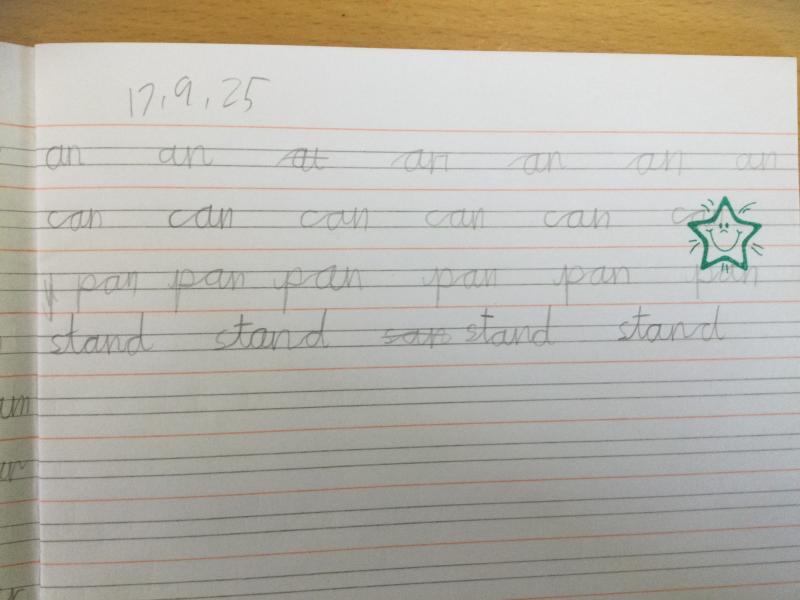 17.9.25
an an at an an an an
can can can can can ca
pan pan pan pan pan pan
stand stand san stand stand
um